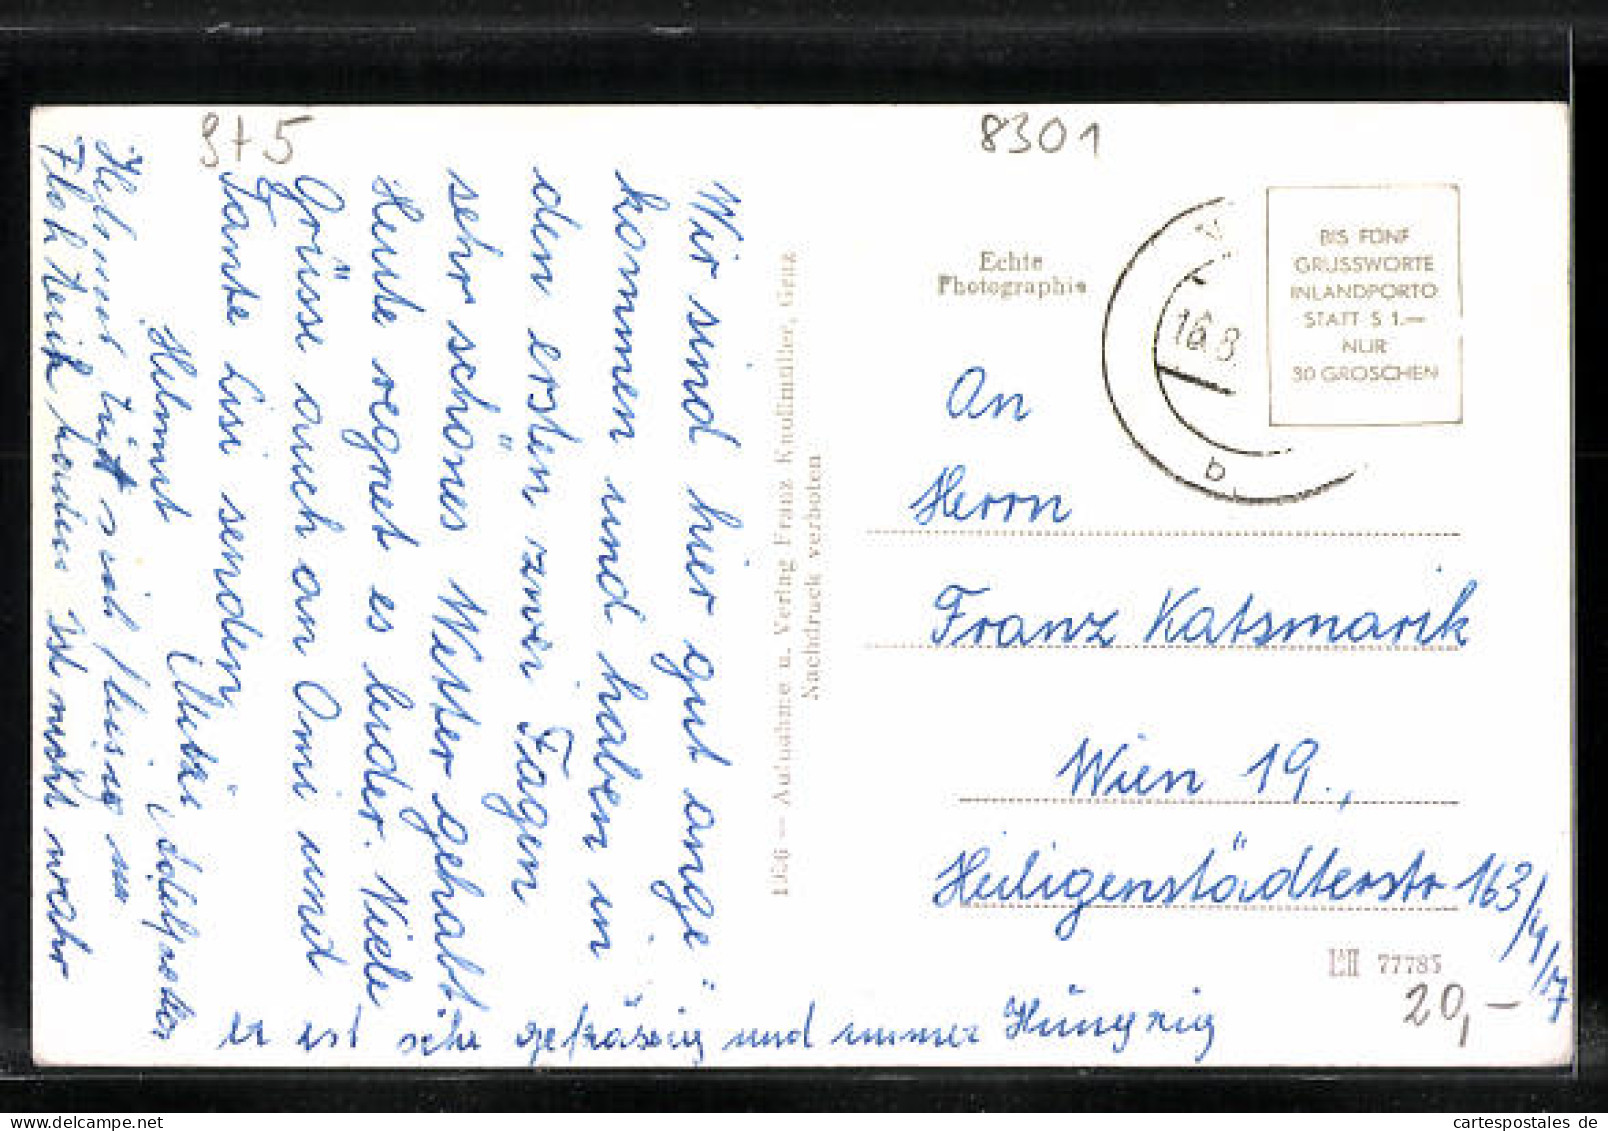 9+5
8301
Wir sind hier gut ange=
kommen und haben in
den ersten zwei Tagen
sehr schönes Wetter gehabt.
Heute regnet es leider. Viele
Grüsse auch an Omi und
Tante Lisi senden
Helmut
Helmut
sich fleisig
ist nicht wahr
er ist sehr gefrässig und immer Hungrig
Aufnahme u. Verlag Franz Knollmüller, Graz
Nachdruck verboten
Echte
Photographie
16. 8
b
BIS FÜNF
GRUSSWORTE
INLANDPORTO
STATT S 1.—
NUR
30 GROSCHEN
An
Herrn
Franz Katsmarik
Wien 19.,
Heiligenstädterstr 163/4/17
77785
20,-
cartespostales de